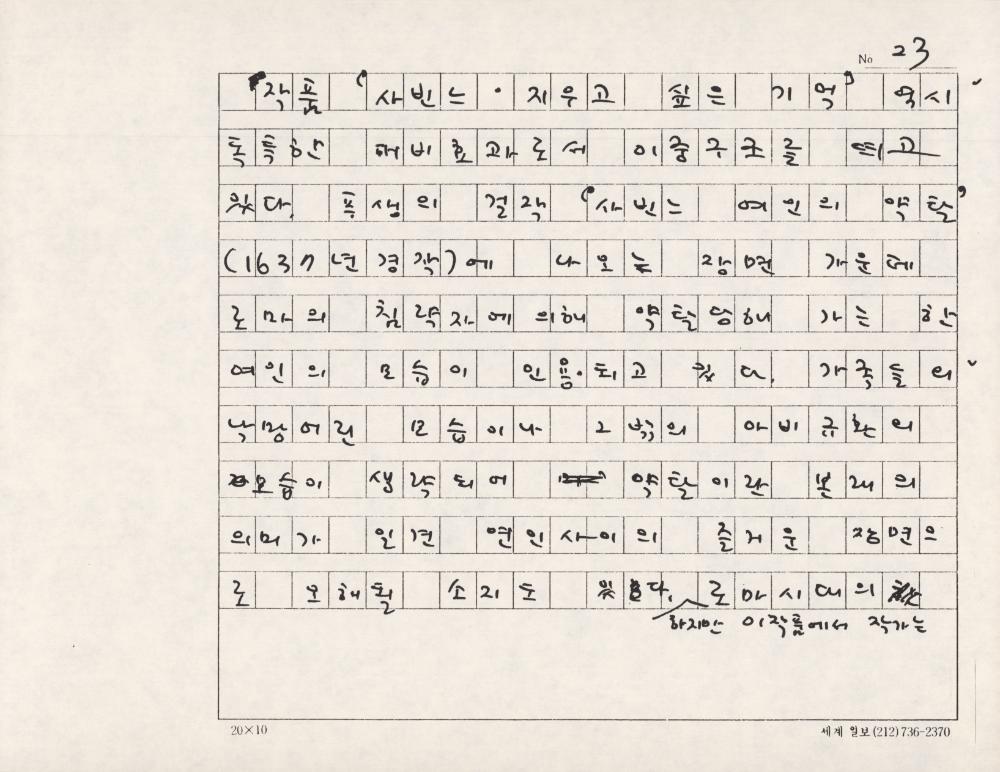 No 23
작품 '사빈느·지우고 싶은 기억' 역시
독특한 대비효과로서 이중구조를 띄고
있다. 푸생의 걸작 '사빈느 여인의 약탈'
(1637년경작)에 나오는 장면 가운데
로마의 침략자에 의해 약탈당해 가는 한
여인의 모습이 인용·되고 있다. 가족들의
낙망어린 모습이나 그 밖의 아비규환의
모습이 생략되어 약탈이란 본래의
의미가 일견 연인사이의 즐거운 장면으
로 오해될 소지도 있다. 로마시대의
하지만 이작품에서 작가는
20×10
세계 일보 (212) 736-2370